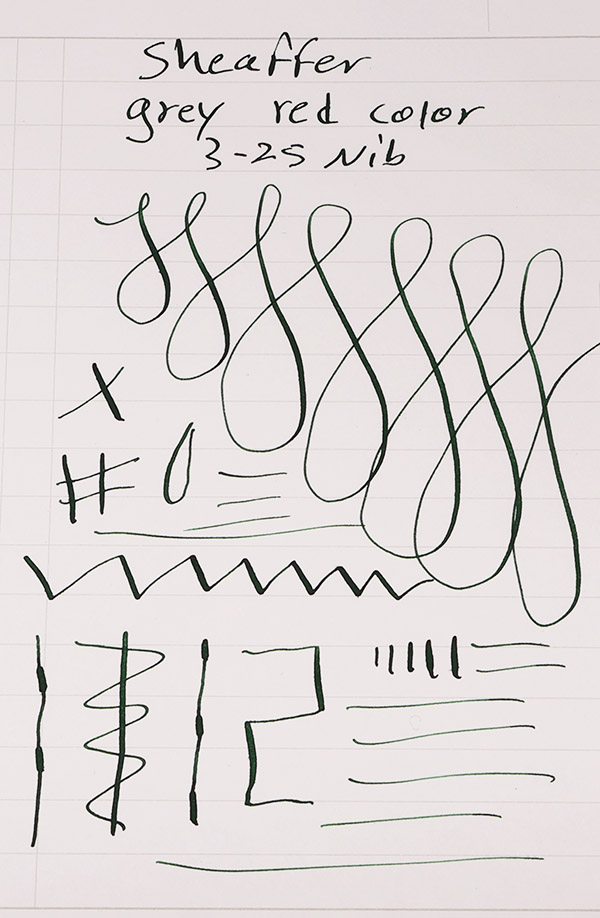 Sheaffer
grey red color
3-25 Nib